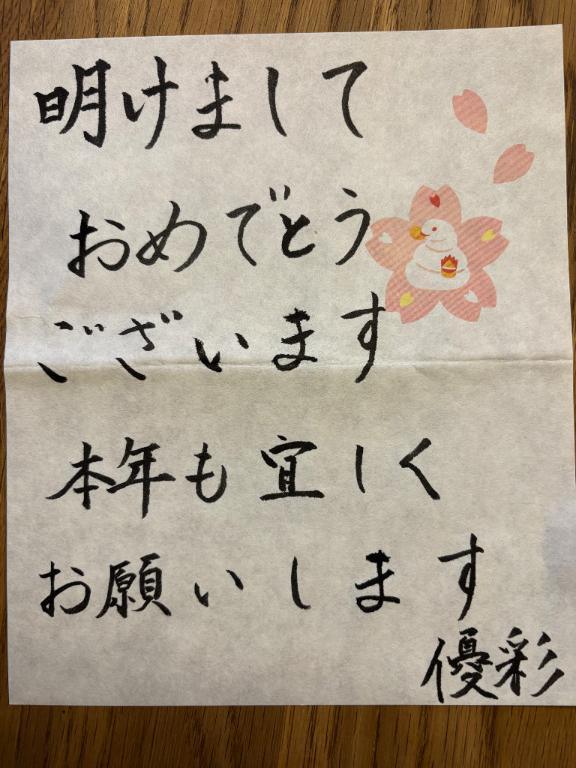 明けまして
おめでとう
ございます
本年も宜しく
お願いします
優彩